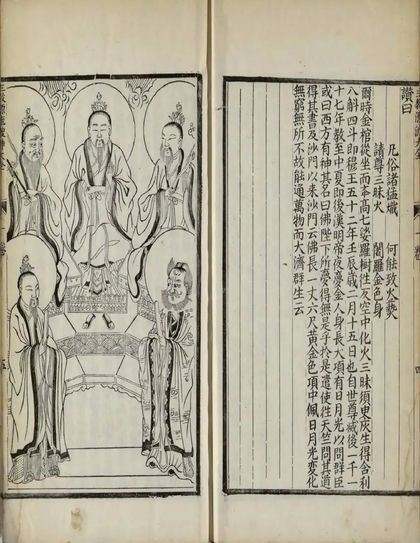 讚曰
凡俗諸猛熾 何能致火爇
請尊三昧火 闍維金色身
爾時金棺從坐而舉高七婆羅樹徃反空中化火三昧須臾灰生得舍利
八斛四斗即穆王五十二年壬辰歲二月十五日也自世尊滅後一千一
十七年教至中夏即後漢明帝夜夢金人身長大項有日月光以問群臣
或曰西方有神其名曰佛陛下所夢得無是乎於是遣使徃天竺問其道
得其書及沙門以來沙門云佛長一丈六尺黃金色項中佩日月光變化
無窮無所不故能通萬物而大濟群生云